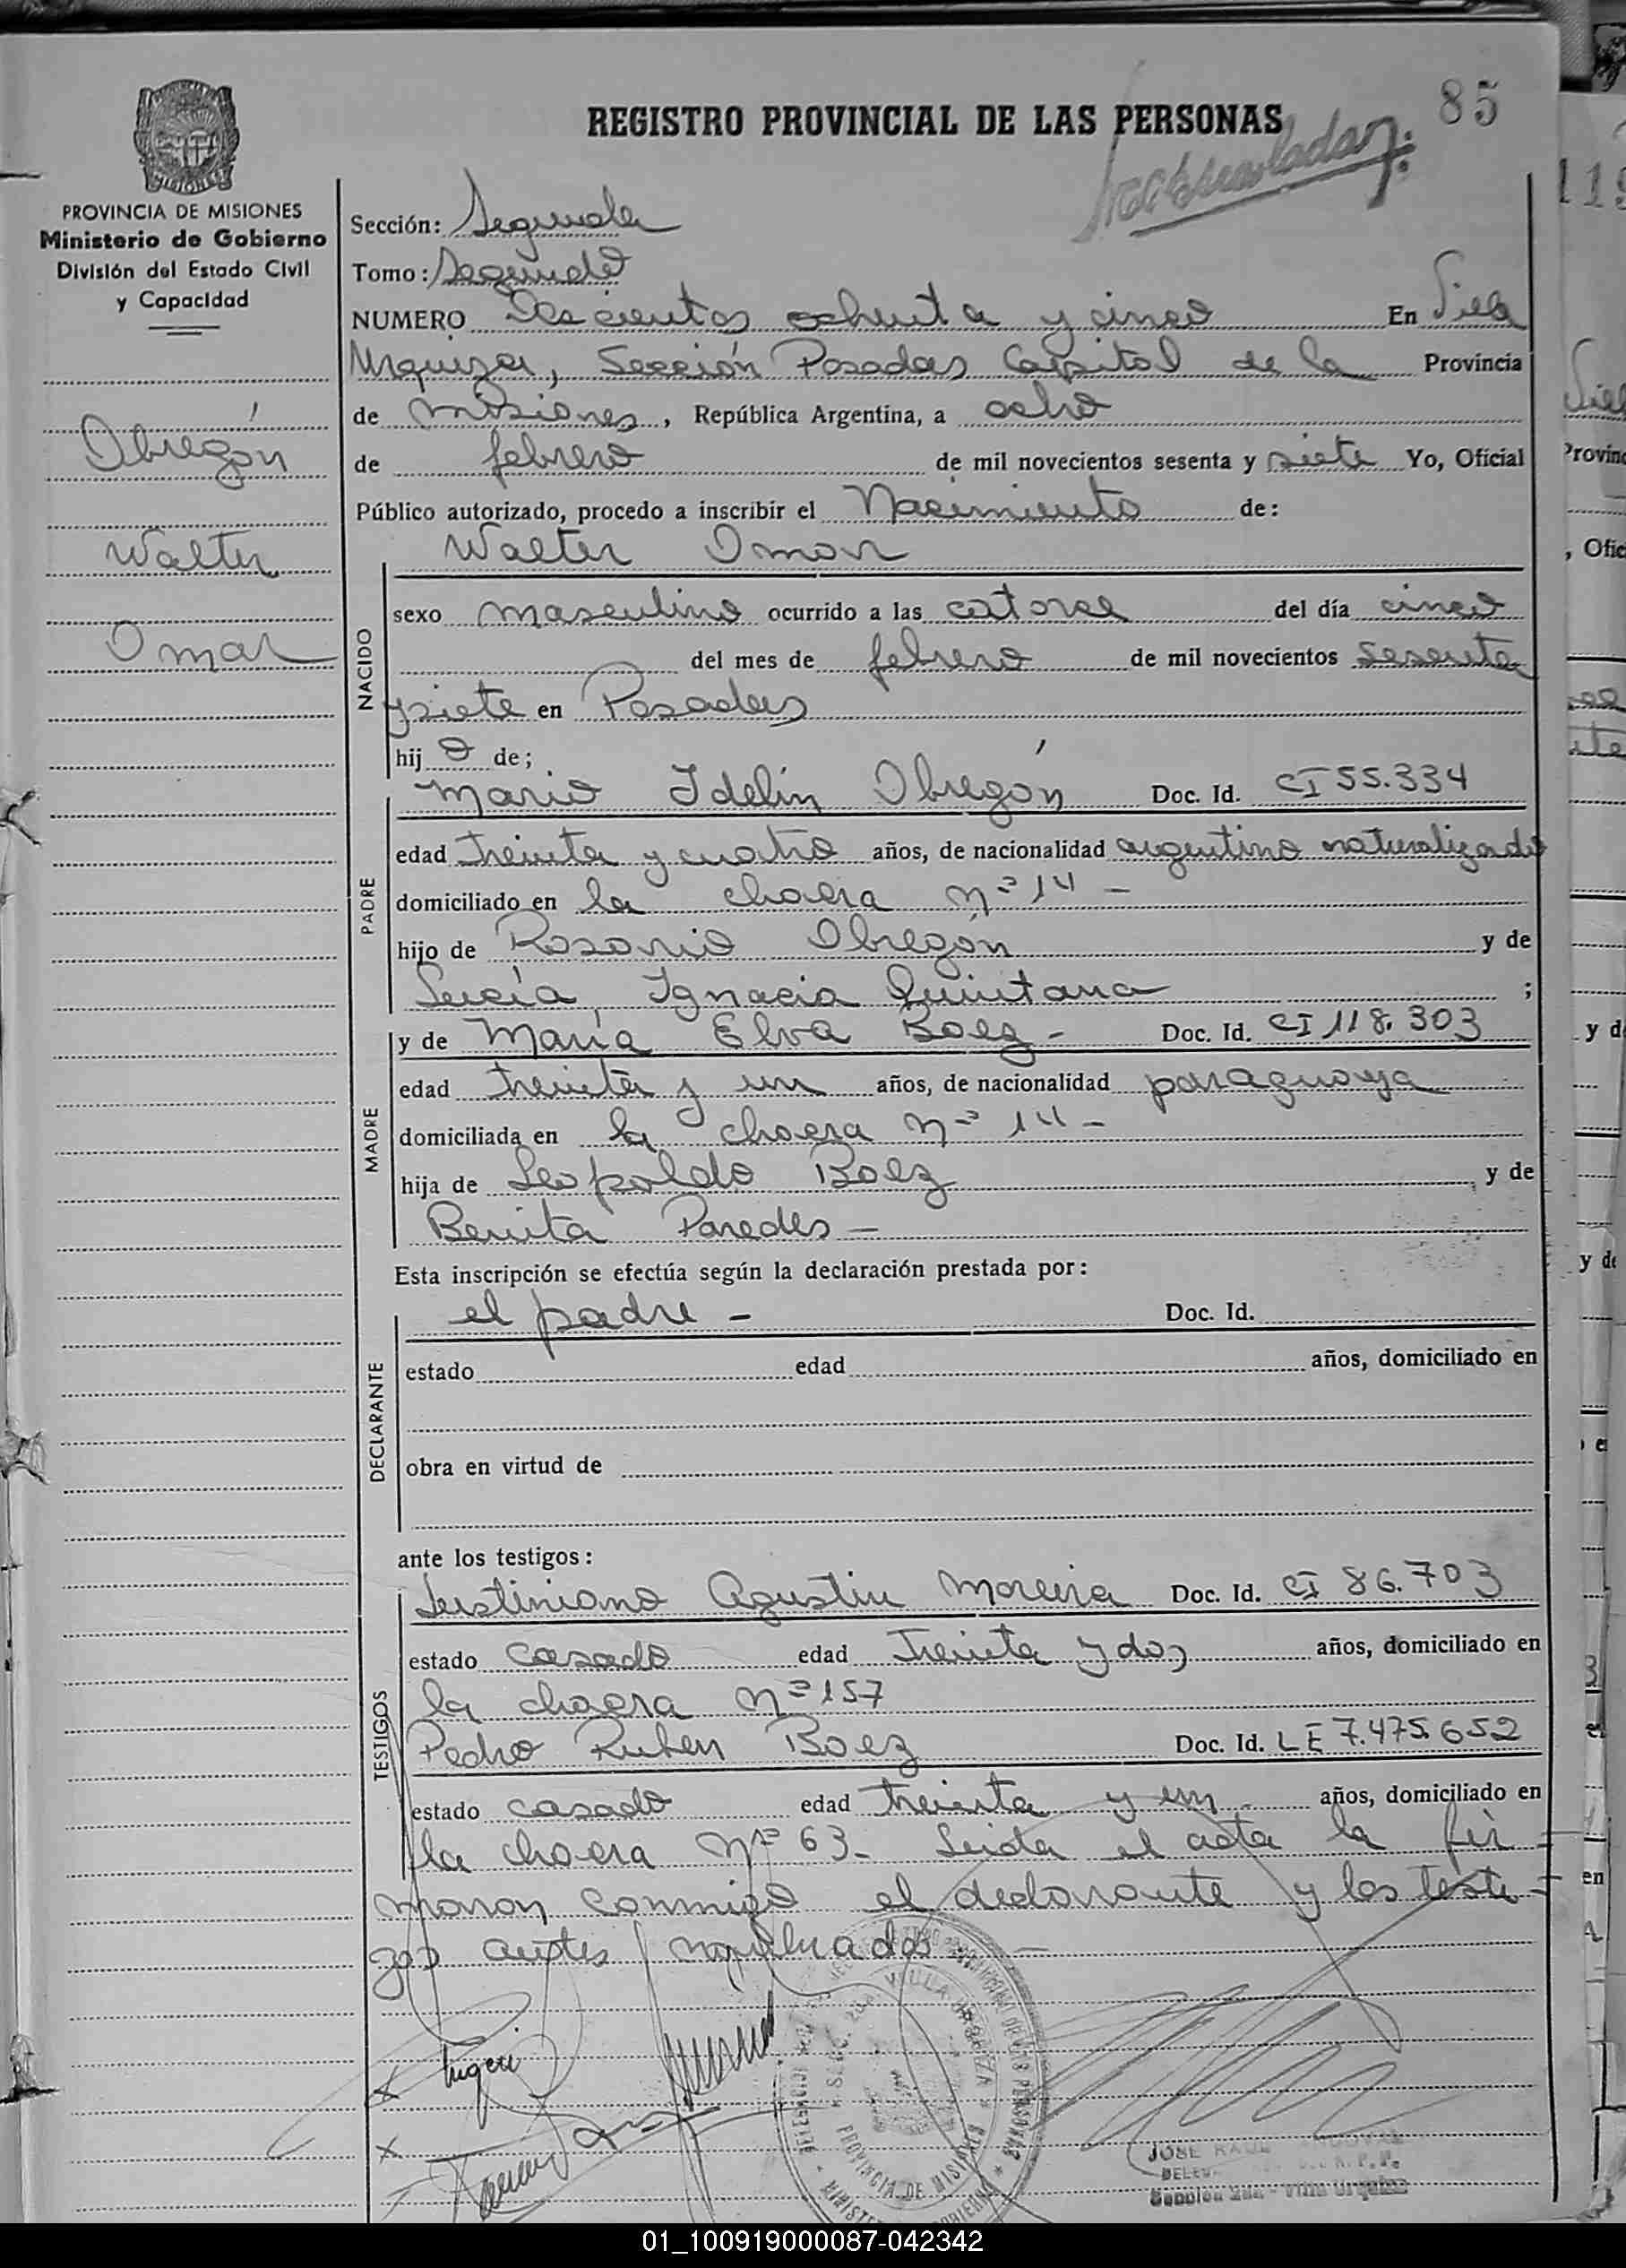 85
REGISTRO PROVINCIAL DE LAS PERSONAS
MISIONES
PROVINCIA DE MISIONES
Ministerio de Gobierno
División del Estado Civil
y Capacidad
Obregón
Walter
Omar
Sección: Segunda
Tomo: Segundo
NUMERO Doscientos ochenta y cinco En Villa
Urquiza, Sección Posadas Capital de la Provincia
de Misiones, República Argentina, a ocho
de febrero de mil novecientos sesenta y siete Yo, Oficial
Público autorizado, procedo a inscribir el Nacimiento de:
Walter Omar
NACIDO
sexo masculino ocurrido a las catorce del día cinco
del mes de febrero de mil novecientos sesenta
y siete en Posadas
hij o de;
PADRE
Mario Idelín Obregón Doc. Id. CI 55.334
edad treinta y cuatro años, de nacionalidad argentino naturalizado
domiciliado en la chacra nº 14 -
hijo de Rosario Obregón y de
Lucía Ignacia Quintana ;
MADRE
y de María Elva Baez - Doc. Id. CI 118.303
edad treinta y un años, de nacionalidad paraguaya
domiciliada en la chacra nº 14 -
hija de Leopoldo Baez y de
Benita Paredes -
Esta inscripción se efectúa según la declaración prestada por:
DECLARANTE
el padre - Doc. Id.
estado edad años, domiciliado en
obra en virtud de
ante los testigos:
TESTIGOS
Justiniano Agustin Moreira Doc. Id. CI 86.703
estado casado edad treinta y dos años, domiciliado en
la chacra nº 157
Pedro Ruben Baez Doc. Id. LE 7.475.652
estado casado edad treinta y un años, domiciliado en
la chacra nº 63 - Leida el acta la fir
maron conmigo el declarante y los testi-
gos antes nombrados -
VILLA URQUIZA
PROVINCIA DE MISIONES
JOSE RAUL
Sección 2da - Villa Urquiza
01_100919000087-042342